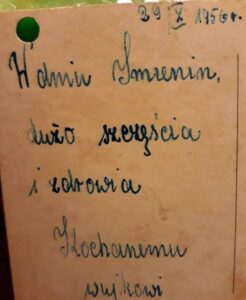 29 X 1956 r.
W dniu Imienin,
dużo szczęścia
i zdrowia
Kochanemu
wujkowi